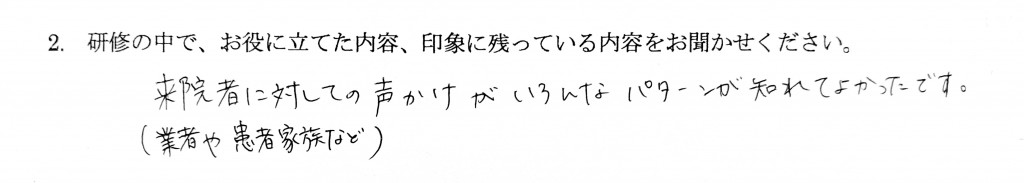 2. 研修の中で、お役に立てた内容、印象に残っている内容をお聞かせください。
来院者に対しての声かけがいろんなパターンが知れてよかったです。
(業者や患者家族など)